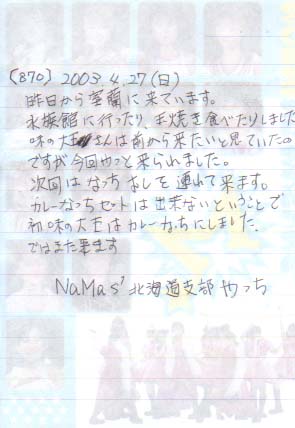 〔870〕 2003 4.27(日)
昨日から室蘭に来ています。
水族館に行ったり、手焼き食べたりしました
味の大王さんは前から来たいと思っていたの
ですが今回やっと来られました。
次回はなっちおしを連れて来ます。
カレーなっちセットは出来ないということで
初味の大王はカレーかっちにしました。
ではまた来ます
NaMas' 北海道支部 やっち